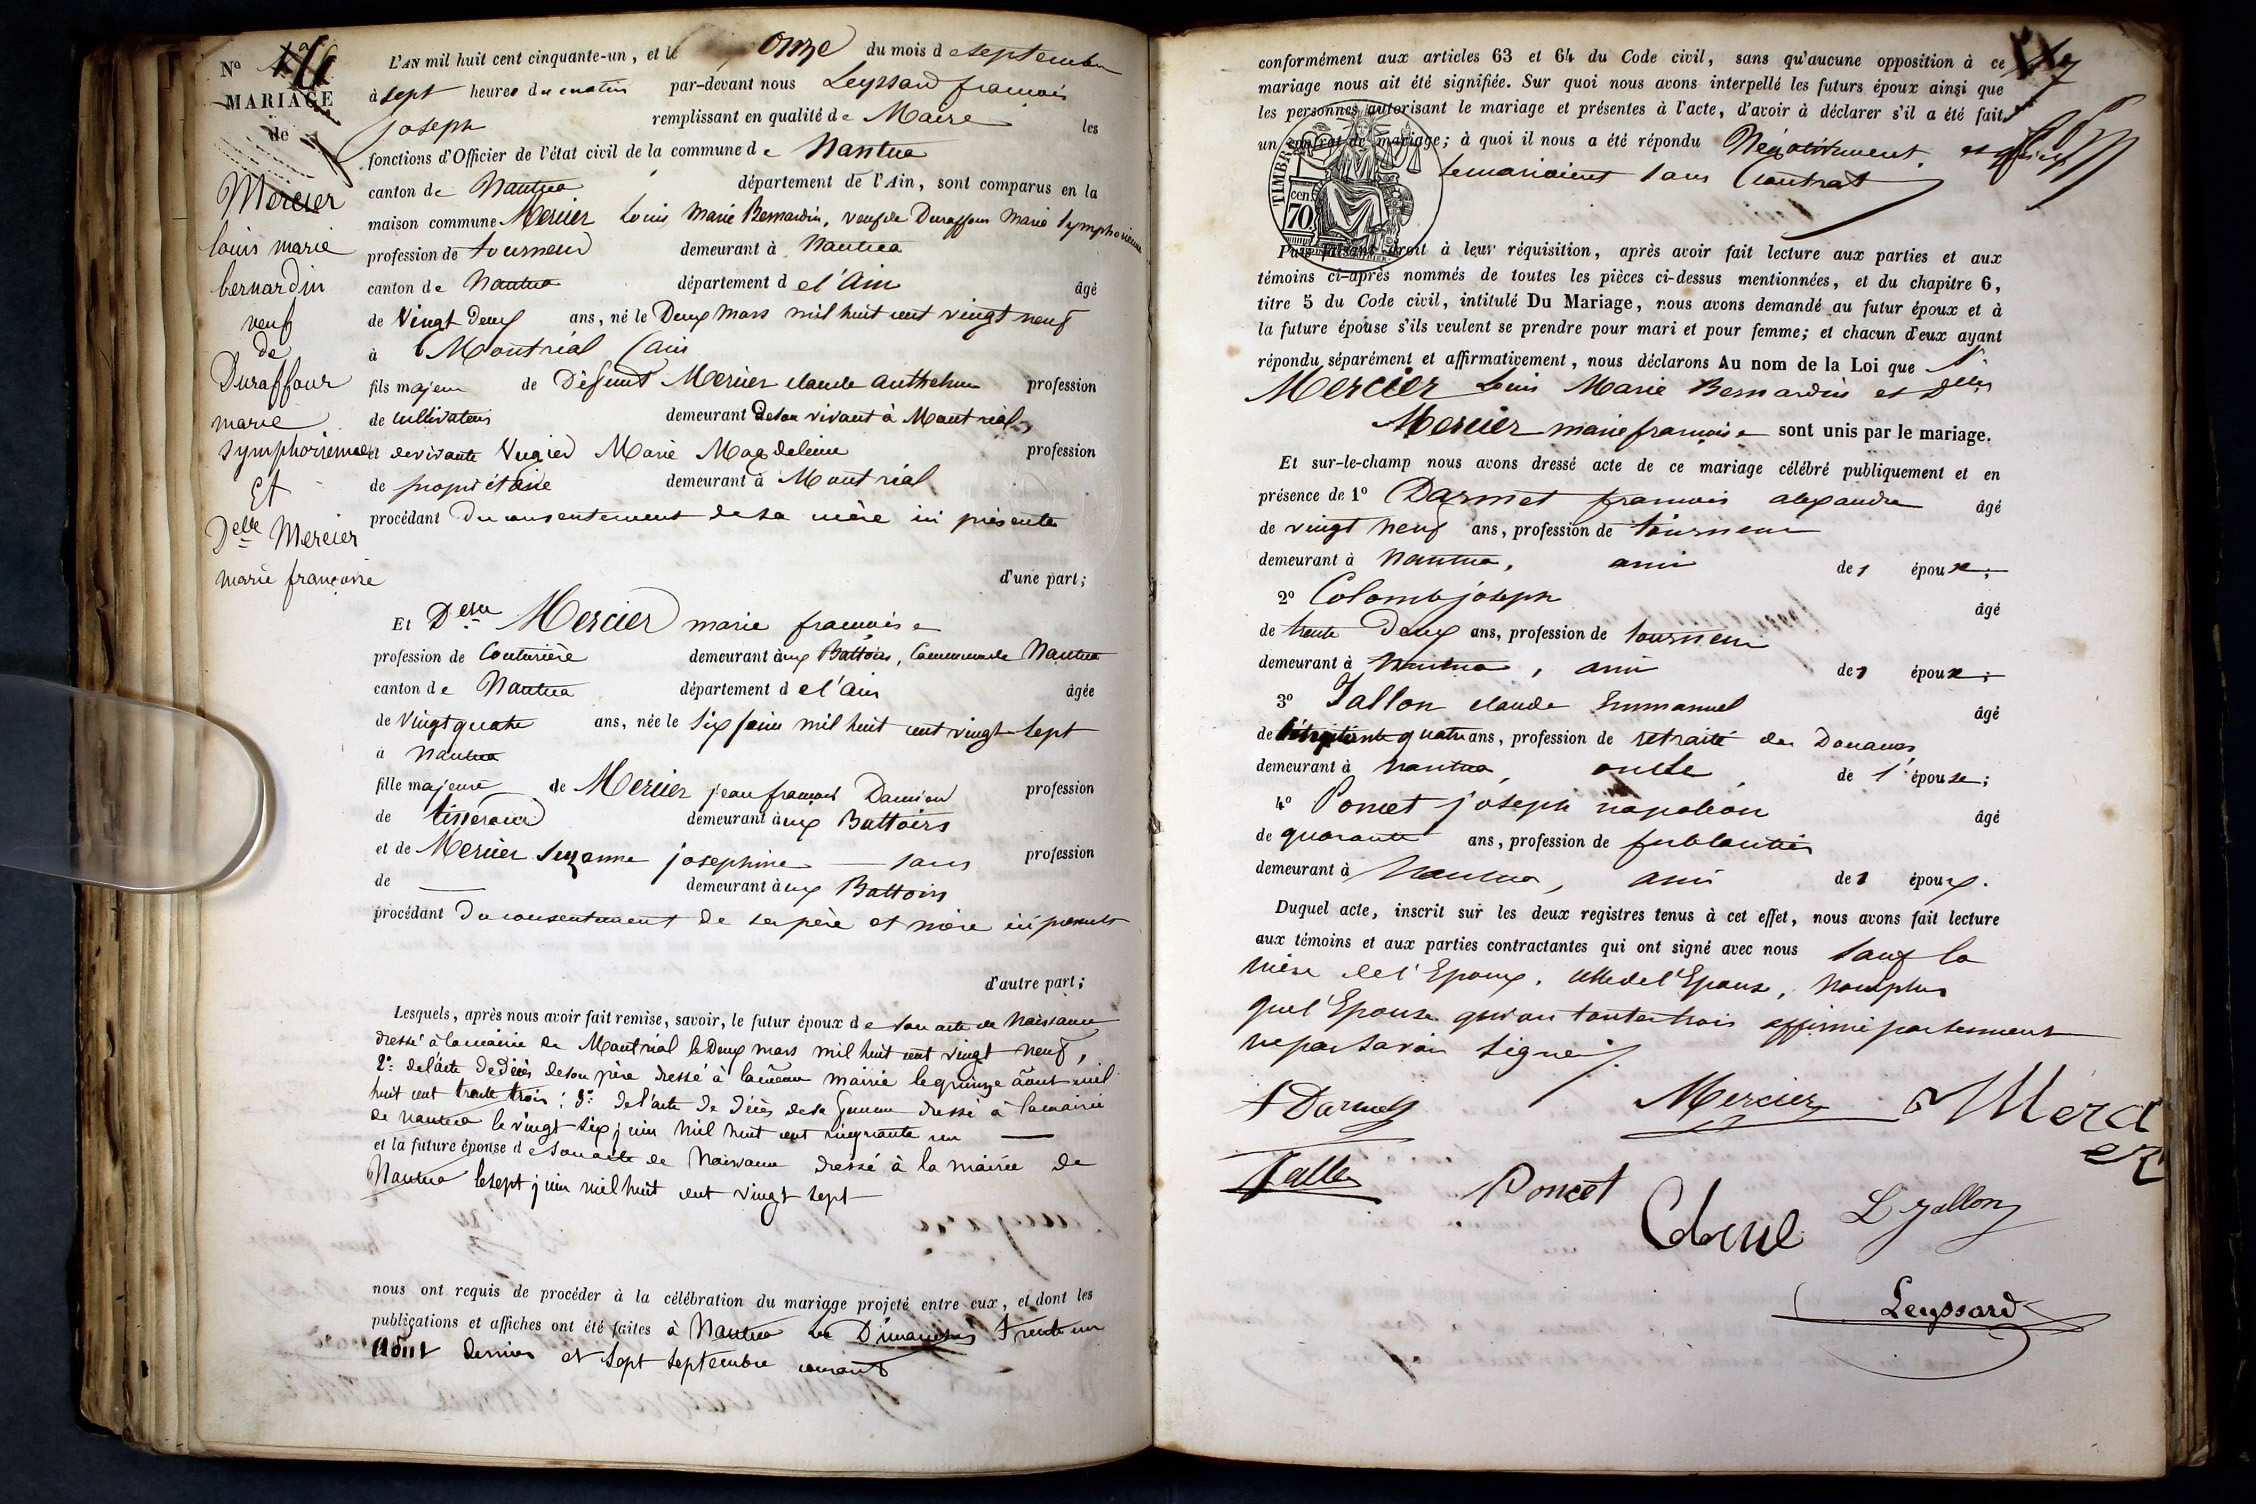 No 16
MARIAGE
de
Mercier
louis marie
bernardin
veuf
de
Duraffour
marie
symphorienne
Et
Delle Mercier
marie françoise
L'AN mil huit cent cinquante-un, et le onze du mois de septembre
à sept heures du matin par-devant nous Leyssard françois
joseph remplissant en qualité de Maire les
fonctions d'Officier de l'état civil de la commune de Nantua
canton de Nantua département de l'Ain, sont comparus en la
maison commune Mercier Louis Marie Bernardin, veuf de Duraffour Marie Symphorienne
profession de tourneur demeurant à Nantua
canton de Nantua département de l'Ain âgé
de Vingt deux ans, né le Deux mars mil huit cent vingt neuf
à Montréal (ain
fils majeur de Défunt Mercier claude anthelme profession
de cultivateur demeurant de son vivant à Montréal
et de vivante Vugier Marie Magdeleine profession
de propriétaire demeurant à Montréal
procédant Du consentement de sa mère ici présente
d'une part;
Et Delle Mercier marie françoise
profession de Couturière demeurant aux Battoirs, Commune de Nantua
canton de Nantua département de l'ain âgée
de Vingt quatre ans, née le Six juin mil huit cent vingt sept
à Nantua
fille majeure de Mercier jean françois Damien profession
de tisserand demeurant aux Battoirs
et de Mercier Suzanne josephine — sans profession
de — demeurant aux Battoirs
procédant Du consentement de ses père et mère ici présents
d'autre part;
Lesquels, après nous avoir fait remise, savoir, le futur époux de son acte de Naissance
dressé à la mairie de Montréal le Deux mars mil huit cent vingt neuf,
2o de l'acte de décès de son père dressé à la même mairie le quinze août mil
huit cent trente trois; 3o de l'acte de décès de sa femme dressé à la mairie
de nantua le vingt six juin mil huit cent cinquante un —
et la future épouse de son acte de Naissance dressé à la mairie de
Nantua le sept juin mil huit cent vingt sept
nous ont requis de procéder à la célébration du mariage projeté entre eux, et dont les
publications et affiches ont été faites à Nantua les Dimanches trente un
Août dernier et sept septembre courant
conformément aux articles 63 et 64 du Code civil, sans qu'aucune opposition à ce
mariage nous ait été signifiée. Sur quoi nous avons interpellé les futurs époux ainsi que
les personnes autorisant le mariage et présentes à l'acte, d'avoir à déclarer s'il a été fait
un contrat de mariage; à quoi il nous a été répondu Négativement et qu'ils
se mariaient sans Contrat
TIMBRE
70 cen.
Puis faisant droit à leur réquisition, après avoir fait lecture aux parties et aux
témoins ci-après nommés de toutes les pièces ci-dessus mentionnées, et du chapitre 6,
titre 5 du Code civil, intitulé Du Mariage, nous avons demandé au futur époux et à
la future épouse s'ils veulent se prendre pour mari et pour femme; et chacun d'eux ayant
répondu séparément et affirmativement, nous déclarons Au nom de la Loi que Sr
Mercier Louis Marie Bernardin et Delle
Mercier marie françoise sont unis par le mariage.
Et sur-le-champ nous avons dressé acte de ce mariage célébré publiquement et en
présence de 1o Darmet françois alexandre âgé
de vingt neuf ans, profession de tourneur
demeurant à Nantua, ami de l' époux;
2o Colomb joseph âgé
de trente Deux ans, profession de tourneur
demeurant à Nantua, ami de l' époux;
3o Jallon claude Emmanuel âgé
de quatre ans, profession de retraité des Douanes
demeurant à Nantua, oncle de l' épouse;
4o Poncet joseph napoléon âgé
de quarante ans, profession de ferblantier
demeurant à Nantua, ami de l' époux.
Duquel acte, inscrit sur les deux registres tenus à cet effet, nous avons fait lecture
aux témoins et aux parties contractantes qui ont signé avec nous sauf la
mère de l'Epoux, celle de l'Epouse, Non plus
que l'Epouse qui ont toutes trois affirmé
ne pas savoir Signer
Darmet Mercier Merci
er
Jallon Poncet Colomb L Jallon
Leyssard